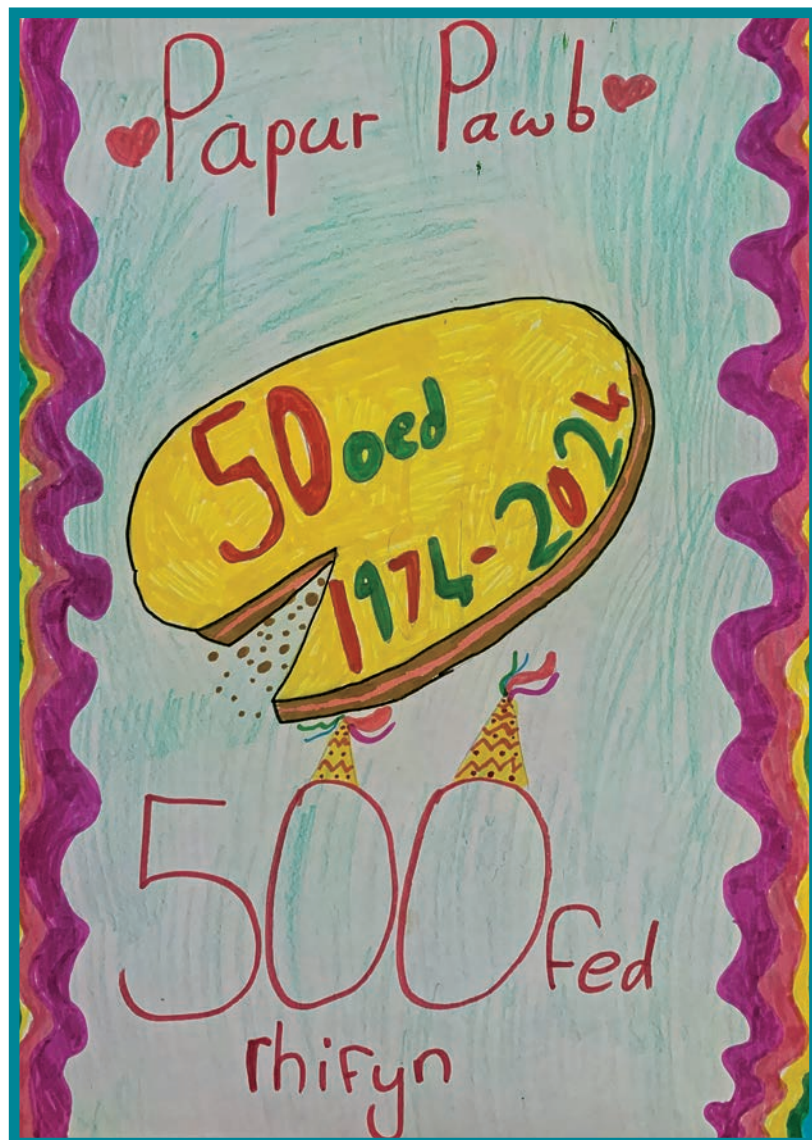 Papur Pawb
50 oed
1974-2024
500fed
rhifyn